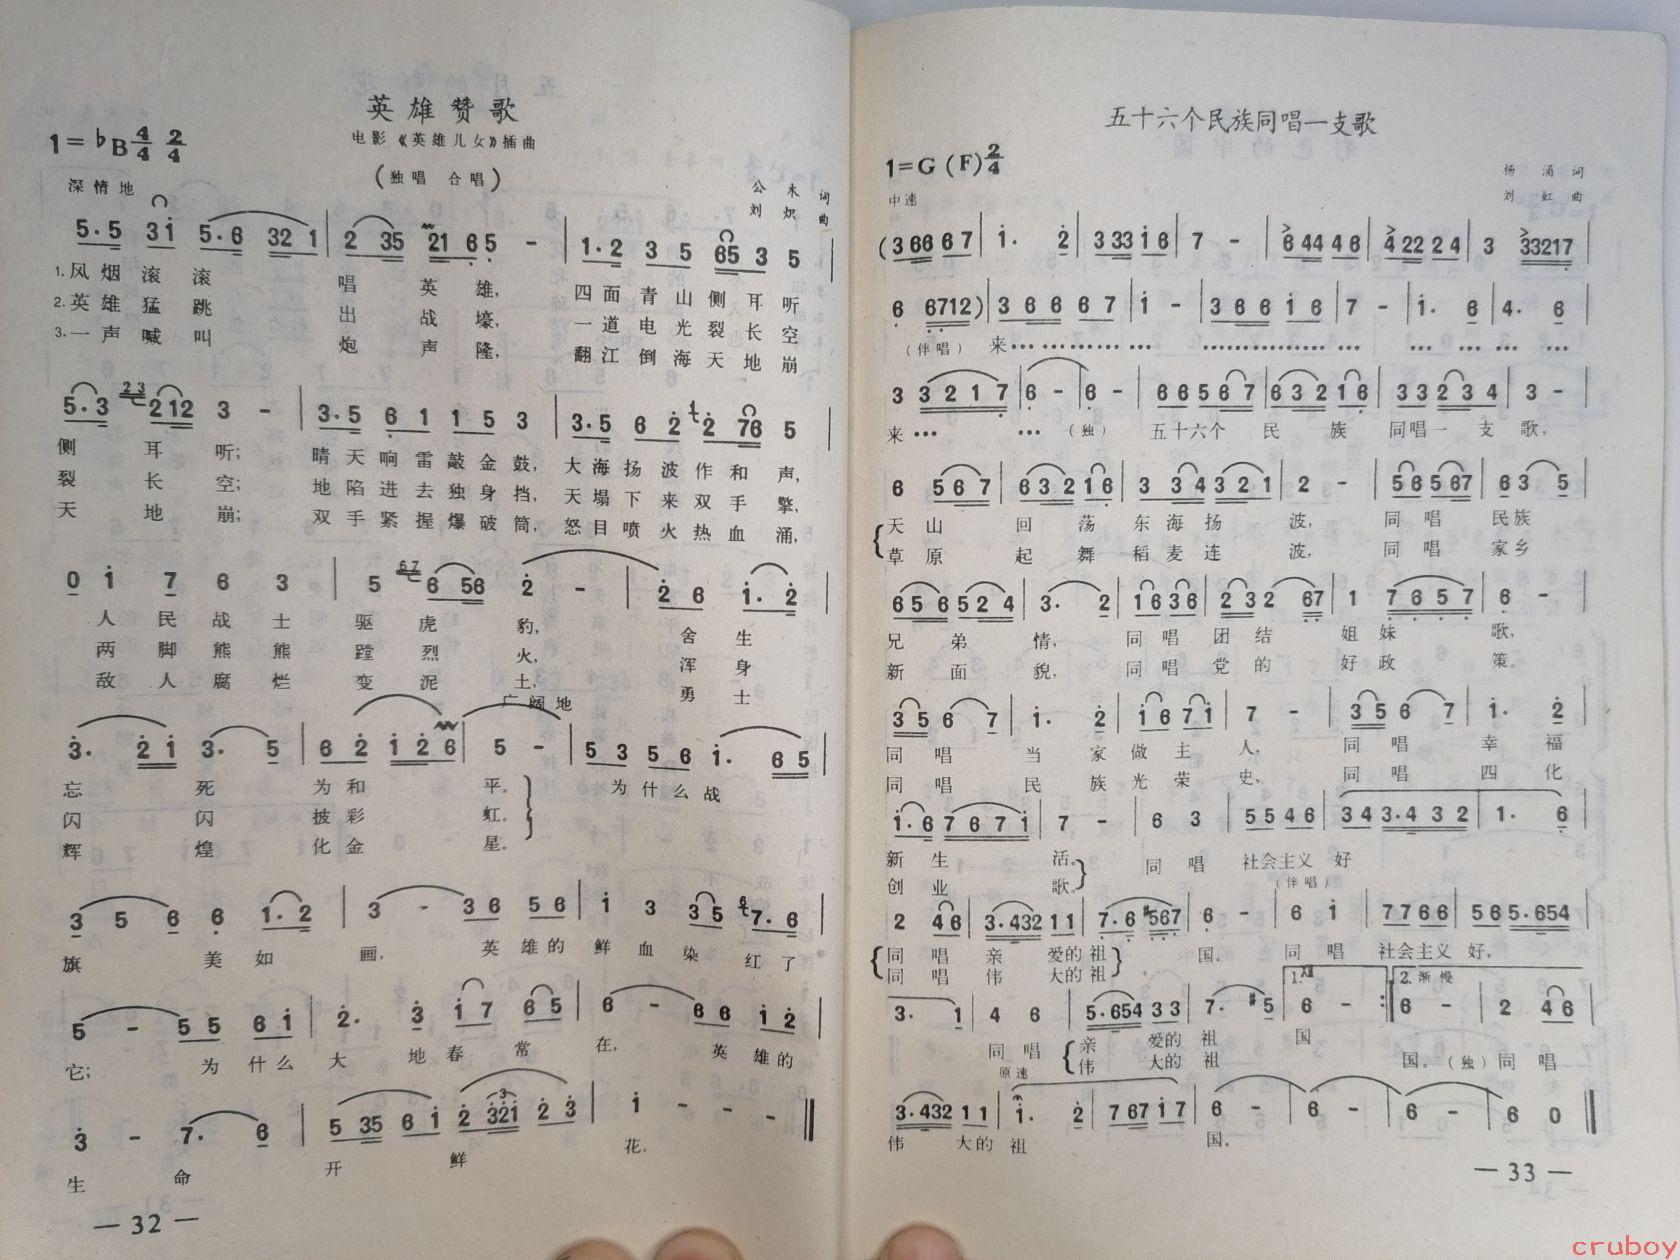 英雄赞歌
电影《英雄儿女》插曲
1=♭B 4/4 2/4
(独唱 合唱)
深情地
公木 词
刘炽 曲
5·5 3i 5·6 32 1 | 2 35 21 6 5 - | 1·2 3 5 65 3 5 |
1.风烟滚滚 唱英雄, 四面青山侧耳听
2.英雄猛跳 出战壕, 一道电光裂长空
3.一声喊叫 炮声隆, 翻江倒海天地崩
5·3 23 212 3 - | 3·5 6 1 1 5 3 | 3·5 6 2 1 2 76 5 |
侧耳听; 晴天响雷敲金鼓, 大海扬波作和声,
裂长空; 地陷进去独身挡, 天塌下来双手擎,
天地崩; 双手紧握爆破筒, 怒目喷火热血涌,
0 i 7 6 3 | 5 67 6 56 2 - | 2 6 i·2 |
人民战士驱虎豹, 舍生
两脚熊熊蹚烈火, 浑身
敌人腐烂变泥土, 勇士
广阔地
3· 2 i 3· 5 | 6 2 i 2 6 | 5 - | 5 3 5 6 i· 6 5 |
忘死为和平。 为什么战
闪闪披彩虹。
辉煌化金星。
3 5 6 6 1·2 | 3 - 3 6 5 6 | i 3 3 5 6 7·6 |
旗美如画, 英雄的鲜血染红了
5 - 5 5 6 i | 2· 3 i 7 6 5 | 6 - 6 6 i 2 |
它; 为什么大地春常在, 英雄的
3 - 7· 6 | 5 35 6 i 2 321 2 3 | i - - - ‖
生命开鲜花。
— 32 —
五十六个民族同唱一支歌
1=G (F) 2/4
杨涌 词
中速
刘虹 曲
(3 66 6 7 | i· 2 | 3 33 i 6 | 7 - | 6 44 4 6 | 4 22 2 4 | 3 33217 |
6 6712) | 3 6 6 6 7 | i - | 3 6 6 i 6 | 7 - | i· 6 | 4· 6 |
(伴唱) 来………………
3 3 2 1 7 | 6 - | 6 - | 6 6 5 6 7 | 6 3 2 1 6 | 3 3 2 3 4 | 3 - |
来…… (独) 五十六个民族同唱一支歌,
6 5 6 7 | 6 3 2 1 6 | 3 3 4 3 2 1 | 2 - | 5 6 5 67 | 6 3 5 |
天山回荡东海扬波, 同唱民族
草原起舞稻麦连波, 同唱家乡
6 5 6 5 2 4 | 3· 2 | 1 6 3 6 | 2 3 2 67 | 1 7 6 5 7 | 6 - |
兄弟情, 同唱团结姐妹歌,
新面貌, 同唱党的好政策。
3 5 6 7 | i· 2 | i 6 7 i | 7 - | 3 5 6 7 | i· 2 |
同唱当家做主人, 同唱幸福
同唱民族光荣史, 同唱四化
i·6 7 6 7 i | 7 - | 6 3 | 5 5 4 6 | 3 4 3·4 3 2 | 1· 6 |
新生活。 同唱社会主义好
创业歌。
(伴唱)
2 4 6 | 3·432 1 1 | 7·6 #567 | 6 - | 6 i | 7 7 6 6 | 5 6 5·654 |
同唱亲爱的祖国。 同唱社会主义好,
同唱伟大的祖
1. 2.渐慢
3· 1 | 4 6 | 5·654 3 3 | 7· #5 | 6 - :‖ 6 - | 2 4 6 |
同唱亲爱的祖国 国。(独)同唱
伟大的祖
原速
3·432 1 1 | i· 2 | 7 67 i 7 | 6 - | 6 - | 6 - | 6 0 ‖
伟大的祖国。
— 33 —
cruboy